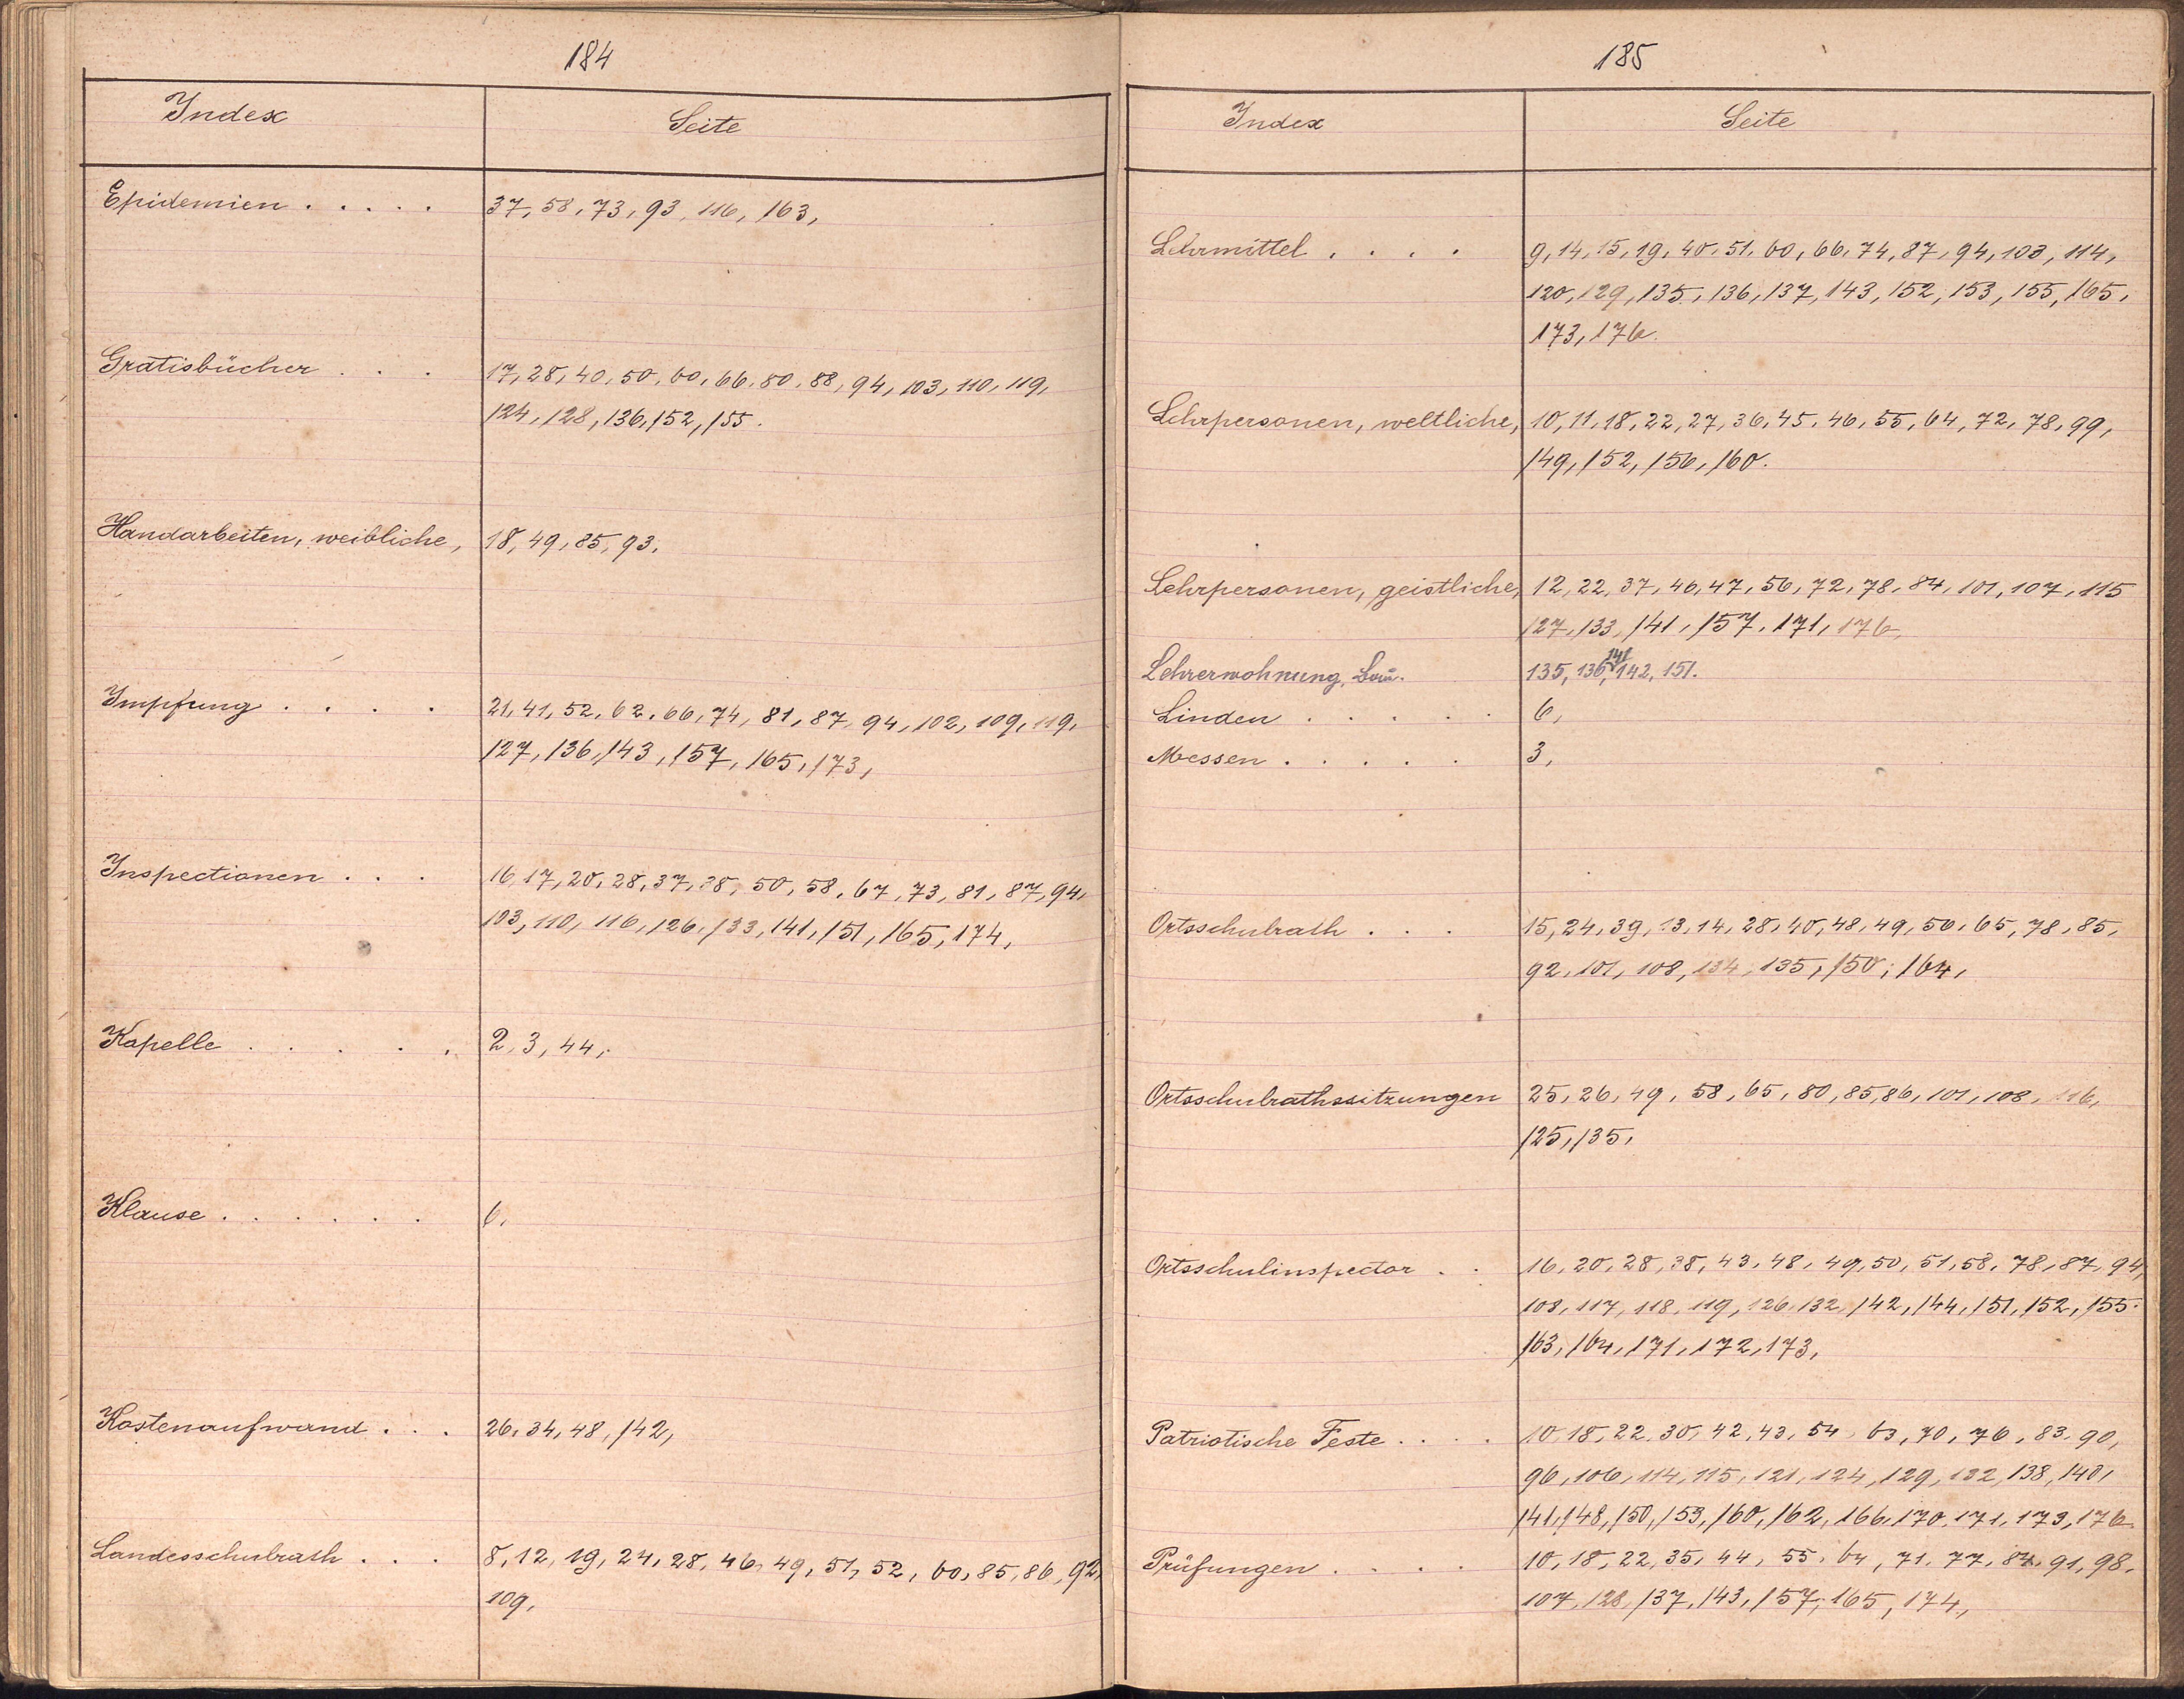 184
Index Seite
Epidemien . . . . . 37, 58, 73, 93, 116, 163,
Gratisbücher . . . 17, 28, 40, 50, 60, 66, 80, 88, 94, 103, 110, 119,
124, 128, 136, 152, 155.
Handarbeiten, weibliche, 18, 49, 85, 93.
Impfung . . . . 21, 41, 52, 62, 66, 74, 81, 87, 94, 102, 109, 119,
127, 136, 143, 157, 165, 173,
Inspectionen . . . 16, 17, 20, 28, 37, 38, 50, 58, 67, 73, 81, 87, 94,
103, 110, 116, 126, 133, 141, 151, 165, 174,
Kapelle . . . . . 2, 3, 44,
Klause . . . . . . 6.
Kostenaufwand . . . 26, 34, 48, 142,
Landesschulrath . . . 8, 12, 19, 24, 28, 46, 49, 51, 52, 60, 85, 86, 92,
109.
185
Index Seite
Lehrmittel . . . . 9, 14, 15, 19, 40, 51, 60, 66, 74, 87, 94, 103, 114,
120, 129, 135, 136, 137, 143, 152, 153, 155, 165,
173, 176.
Lehrpersonen, weltliche, 10, 11, 18, 22, 27, 36, 45, 46, 55, 64, 72, 78, 99,
149, 152, 156, 160.
Lehrpersonen, geistliche, 12, 22, 37, 46, 47, 56, 72, 78, 84, 101, 107, 115
127, 133, 141, 157, 171, 176,
Lehrerwohnung, 135, 136, 141 142, 151.
Linden . . . . . 6,
Messen . . . . . 3,
Ortsschulrath . . . 15, 24, 39, 13, 14, 28, 40, 48, 49, 50, 65, 78, 85,
92, 101, 108, 134, 135, 150, 164,
Ortsschulrathssitzungen 25, 26, 49, 58, 65, 80, 85, 86, 101, 108, 116,
125, 135,
Ortsschulinspector . . 16, 20, 28, 38, 43, 48, 49, 50, 51, 58, 78, 87, 94,
103, 117, 118, 119, 126, 132, 142, 144, 151, 152, 155.
163, 164, 171, 172, 173,
Patriotische Feste . . . . 10, 18, 22, 30, 42, 43, 54, 63, 70, 76, 83, 90,
96, 106, 114, 115, 121, 124, 129, 132, 138, 140,
141, 148, 150, 153, 160, 162, 166, 170, 171, 173, 176.
Prüfungen . . . . 10, 18, 22, 35, 44, 55, 64, 71, 77, 84, 91, 98,
107, 128, 137, 143, 157, 165, 174,